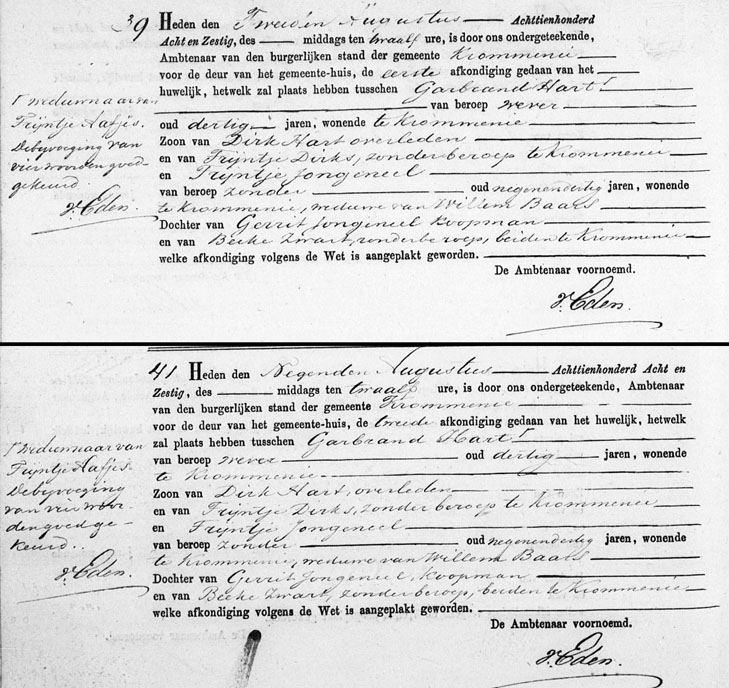 39 Heden den Tweeden Augustus Achttienhonderd
Acht en Zestig, des middags ten twaalf ure, is door ons ondergeteekende,
Ambtenaar van den burgerlijken stand der gemeente Krommenie
voor de deur van het gemeente-huis, de eerste afkondiging gedaan van het
huwelijk, hetwelk zal plaats hebben tusschen Garbrand Hart
van beroep wever
oud dertig jaren, wonende te Krommenie
Zoon van Dirk Hart overleden
en van Trijntje Dirks, zonder beroep te Krommenie
en Trijntje Jongeneel
van beroep zonder oud negenendertig jaren, wonende
te Krommenie, weduwe van Willem Baars
Dochter van Gerrit Jongeneel Koopman
en van Beeke Zwart, zonder beroep, beiden te Krommenie
welke afkondiging volgens de Wet is aangeplakt geworden.
De Ambtenaar voornoemd.
d'Eden.
weduwnaar van
Trijntje Aafjes.
De bijvoeging van
vier woorden goed-
gekeurd.
d'Eden.
41 Heden den Negenden Augustus Achttienhonderd Acht en
Zestig, des middags ten twaalf ure, is door ons ondergeteekende, Ambtenaar
van den burgerlijken stand der gemeente Krommenie
voor de deur van het gemeente-huis, de tweede afkondiging gedaan van het huwelijk, hetwelk
zal plaats hebben tusschen Garbrand Hart
van beroep wever oud dertig jaren, wonende
te Krommenie
Zoon van Dirk Hart, overleden
en van Trijntje Dirks, zonder beroep te Krommenie
en Trijntje Jongeneel
van beroep zonder oud negenendertig jaren, wonende
te Krommenie, weduwe van Willem Baars
Dochter van Gerrit Jongeneel, Koopman
en van Beeke Zwart, zonder beroep, beiden te Krommenie
welke afkondiging volgens de Wet is aangeplakt geworden.
De Ambtenaar voornoemd.
d'Eden.
weduwnaar van
Trijntje Aafjes.
De bijvoeging
van vier woor-
den goed ge-
keurd.
d'Eden.